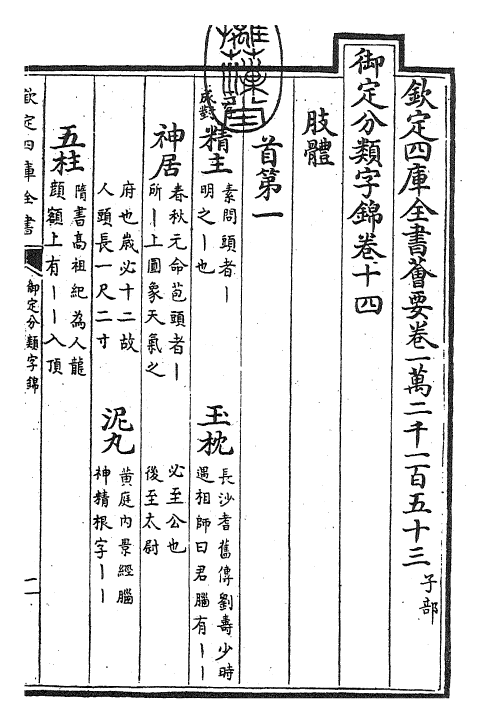 欽定四庫全書薈要卷一萬二千一百五十三子部
御定分類字錦卷十四
肢體
首第一
精主
素問頭者丨
明之丨也
玉枕
長沙耆舊傳劉壽少時
遇相師曰君腦有丨丨
必至公也
後至太尉
神居
春秋元命苞頭者丨
所丨上圓象天氣之
府也歲必十二故
人頭長一尺二寸
泥丸
黄庭内景經腦
神精根字丨丨
五柱
隋書高祖紀為人龍
顔額上有丨丨入頂
欽定四庫全書
御定分類字錦
一